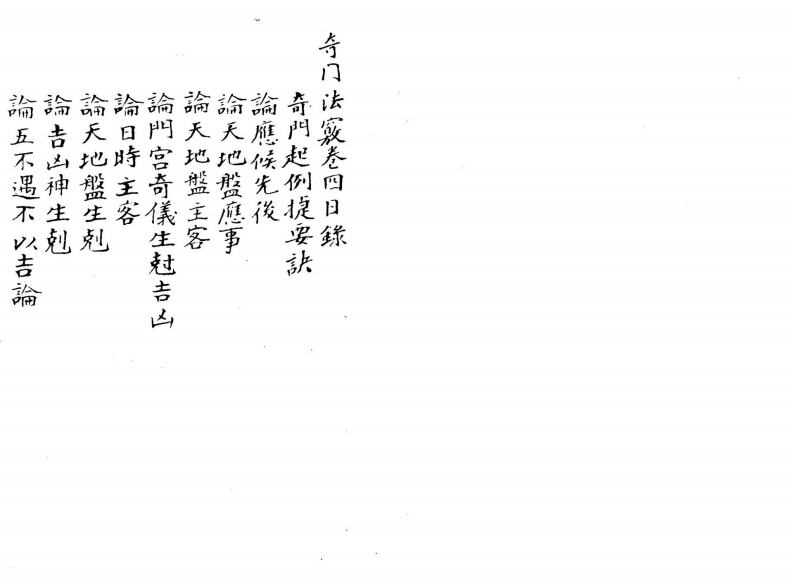 奇门法竅卷四目錄
奇門起例捷要訣
論應候先後
論天地盤應事
論天地盤主客
論門宮奇儀生尅吉凶
論日時主客
論天地盤生剋
論吉凶神生剋
論五不遇不以吉論